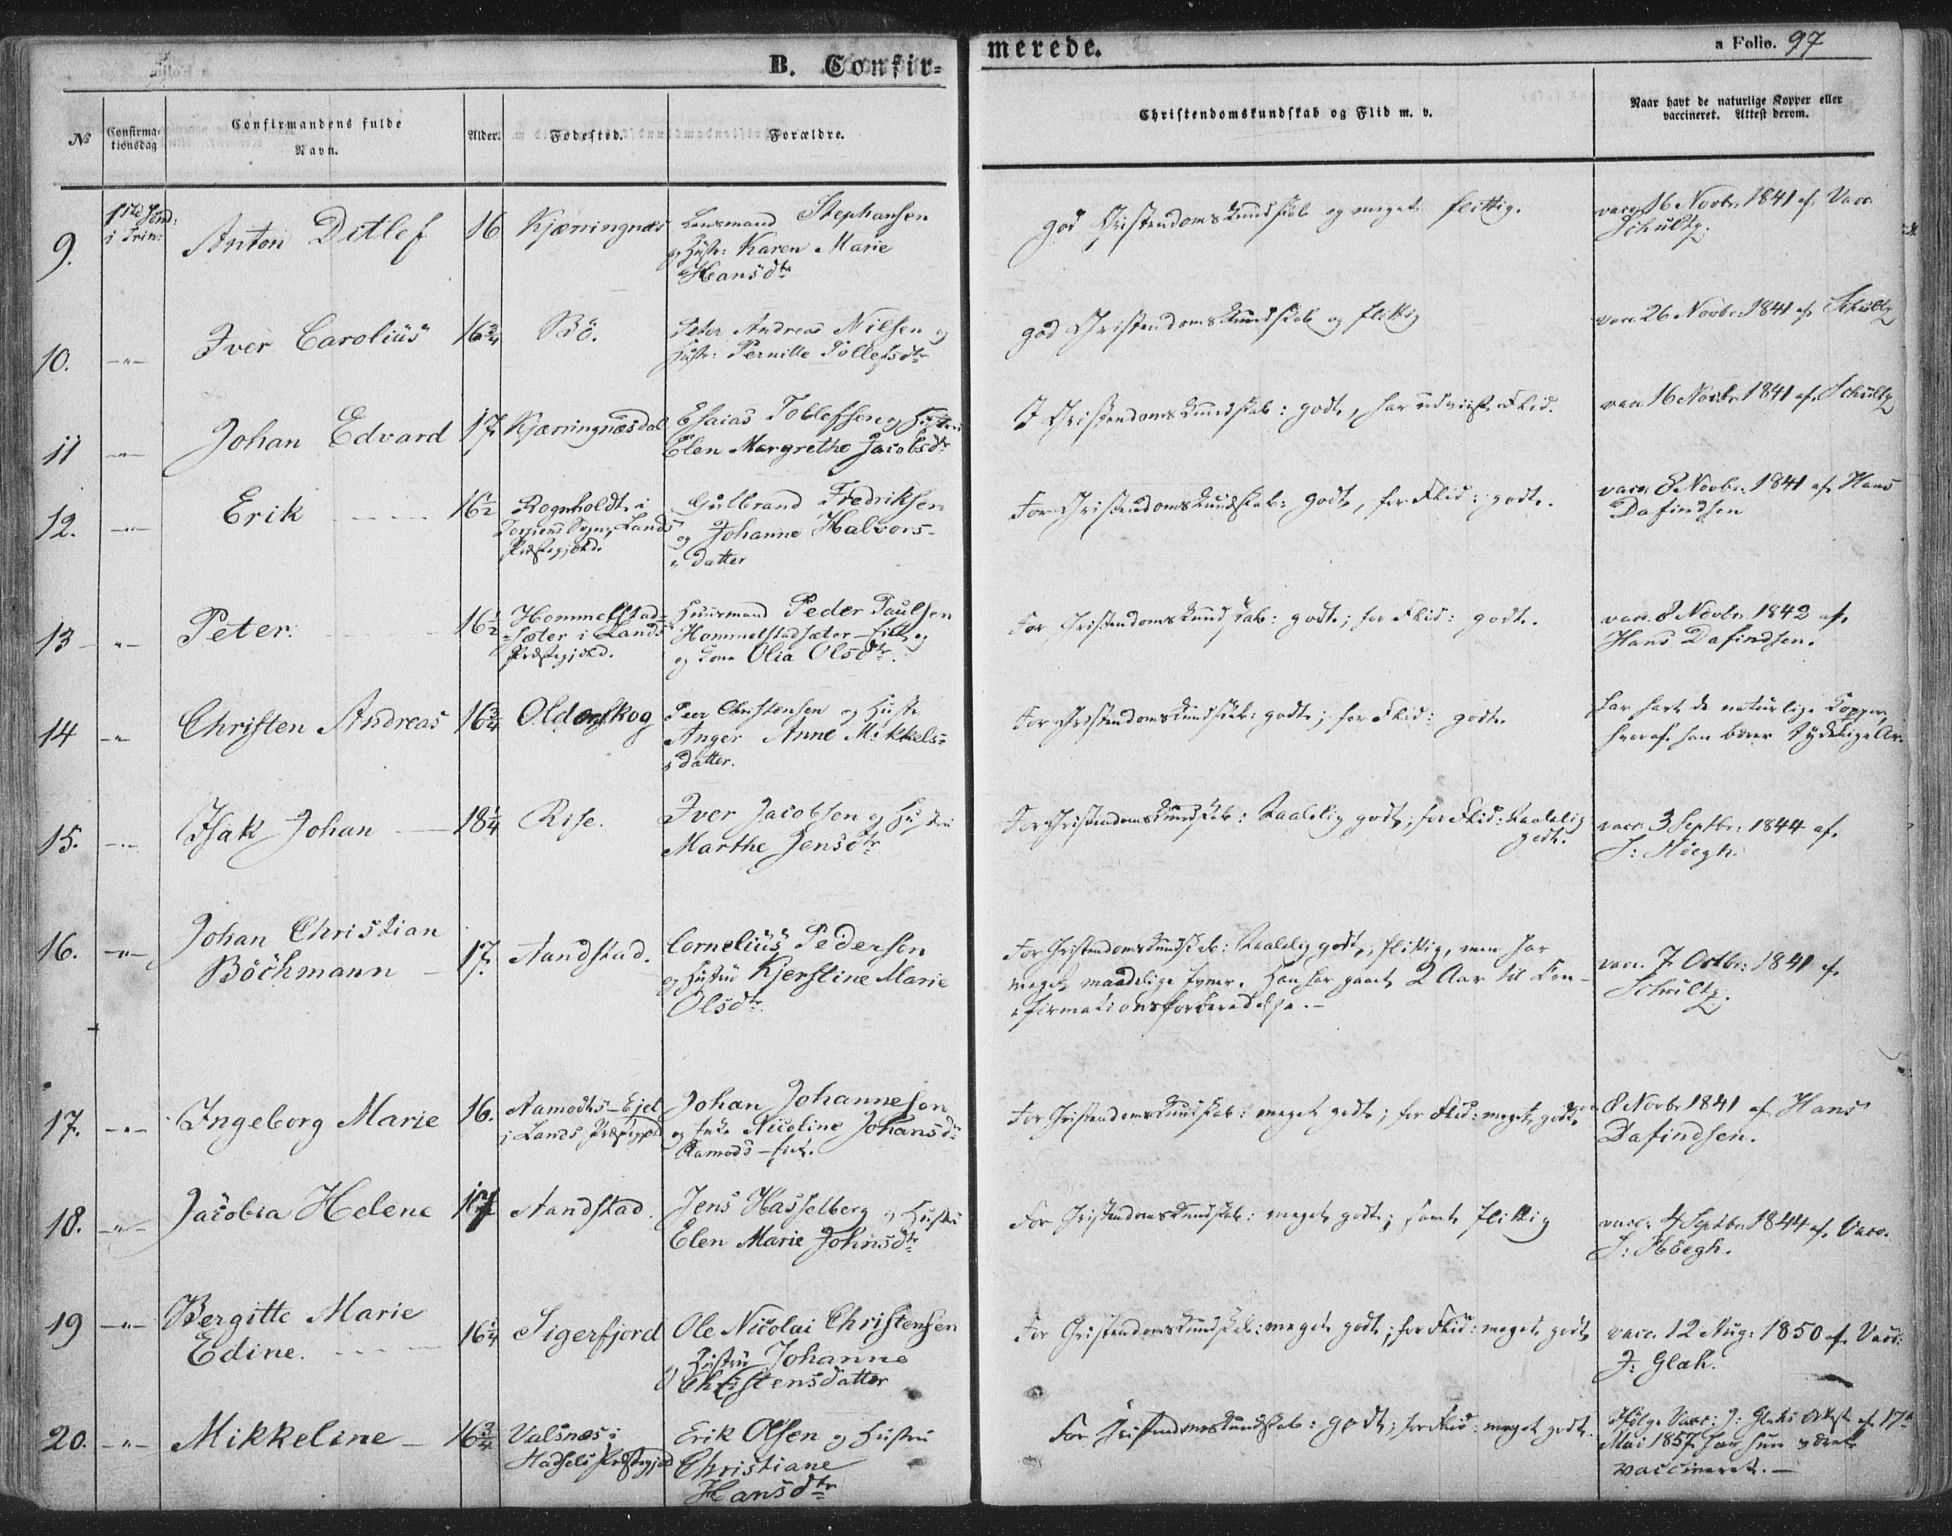 B. Confir-
merede.
a Folio. 97
No
Confirma-
tionsdag
Confirmandens fulde
Navn.
Alder.
Fødested.
Forældre.
Christendomskundskab og Flid m. v.
Naar havt de naturlige Kopper eller
vaccineret. Attest derom.
9.
1ste Sønd:
i Trin:
Anton Ditlef
16
Kjærringnæs
Lensmand Stephansen
og Hustr: Karen Marie
Hansdtr
god Christendomskundskab og meget flittig.
vacc. 16 Novbr. 1841 af Vacc.
Schultz.
10.
-"-
Iver Carolius
16 3/4
Bö.
Peter Andreas Nilsen og
Hustr: Pernille Tollefsdtr
god Christendomskundskab og flittig
vacc. 26 Novbr. 1841 af Schultz
11
-"-
Johan Edvard
17.
Kjærringnæsdal
Esaias Tollefsen og Hustru
Elen Margrethe Jacobsdtr
I Christendomskundskab: godt, har udviist Flid.
vacc. 16 Novbr. 1841 af Schultz
12.
-"-
Erik
16 1/2
Rognholdt i
Lands
Præstegjæld.
Gulbrand Fredriksen
og Johanne Halvors-
datter
For Christendomskundskab: godt, for Flid: godt.
vacc. 8 Novbr. 1841 af Hans
Dafindsen
13
-"-
Peter.
16 1/2
Hommelstad-
sæter i Lands
Præstegjæld.
Huusmand Peder Paulsen
Hommelstadsæter-
og Kone Olia Olsdtr.
For Christendomskundskab: godt; for Flid: godt.
vacc. 8 Novbr. 1842 af
Hans Dafindsen.
14
-"-
Christen Andreas
16 3/4
Olderskog
Peer Christensen og Hustr
Anger Anne Mikkels-
datter.
For Christendomskundskab: godt; for Flid: godt.
har havt de naturlige Kopper,
hvoraf han bærer tydelige Ar.
15.
-"-
Isak Johan
18 1/4
Rise.
Iver Jacobsen og Hustru
Marthe Jensdtr
For Christendomskundskab: Taalelig godt; for Flid: Taalelig
godt.
vacc. 3 Septbr: 1844 af
J: Höegh.
16.
-"-
Johan Christian
Böchmann
17.
Aandstad.
Cornelius Pedersen
og Hustru Kjerstine Marie
Olsdtr.
For Christendomskundskab: Taalelig godt, flittig, men har
meget maadelige Evner. Han har gaaet 2 Aar til Con-
firmationsforberedelse.-
vacc. 7 Octbr: 1841 af
Schultz.
17.
-"-
Ingeborg Marie
16.
Aamodts-Ejet
i Lands Præstegjæld
Johan Johannesen
og Nicoline Johansdtr
Aamods-
For Christendomskundskab: meget godt; for Flid: meget godt.
8 Novbr 1841 af Hans
Dafindsen.
18.
-"-
Jacobia Helene
17
Aandstad.
Jens Hasselberg og Hustru
Elen Marie Johnsdtr
For Christendomskundskab: meget godt; samt flittig
vacc. 4 Septbr 1844 af Vacc.
J: Höegh.
19
-"-
Bergitte Marie
Edine.
16 1/4
Sigerfjord
Ole Nicolai Christensen
og Hustru Johanne
Christensdatter
For Christendomskundskab: meget godt; for Flid: meget godt
vacc. 12 Aug: 1850 af Vacc:
J: Glah.
20.
-"-
Mikkeline
16 3/4
Valsnæs i
Hadsels Præstegjæld
Erik Olsen og Hustru
Christiane
Hansdtr
For Christendomskundskab: godt; for Flid: meget godt.
Ifølge Vacc: J: Glahs Attest af 17de
Mai 1857 har hun været
vaccineret.-